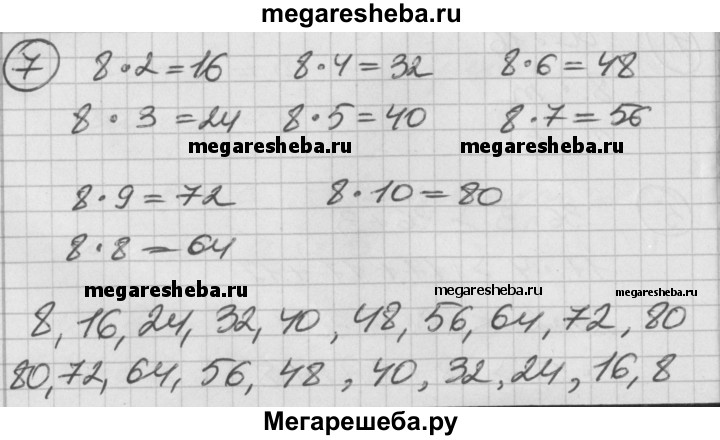 megaresheba.ru
7 8 · 2 = 16 8 · 4 = 32 8 · 6 = 48
8 · 3 = 24 8 · 5 = 40 8 · 7 = 56
megaresheba.ru megaresheba.ru
8 · 9 = 72 8 · 10 = 80
8 · 8 = 64
megaresheba.ru megaresheba.ru megaresheba.ru
8, 16, 24, 32, 40, 48, 56, 64, 72, 80
80, 72, 64, 56, 48, 40, 32, 24, 16, 8
Мегарешеба.ру